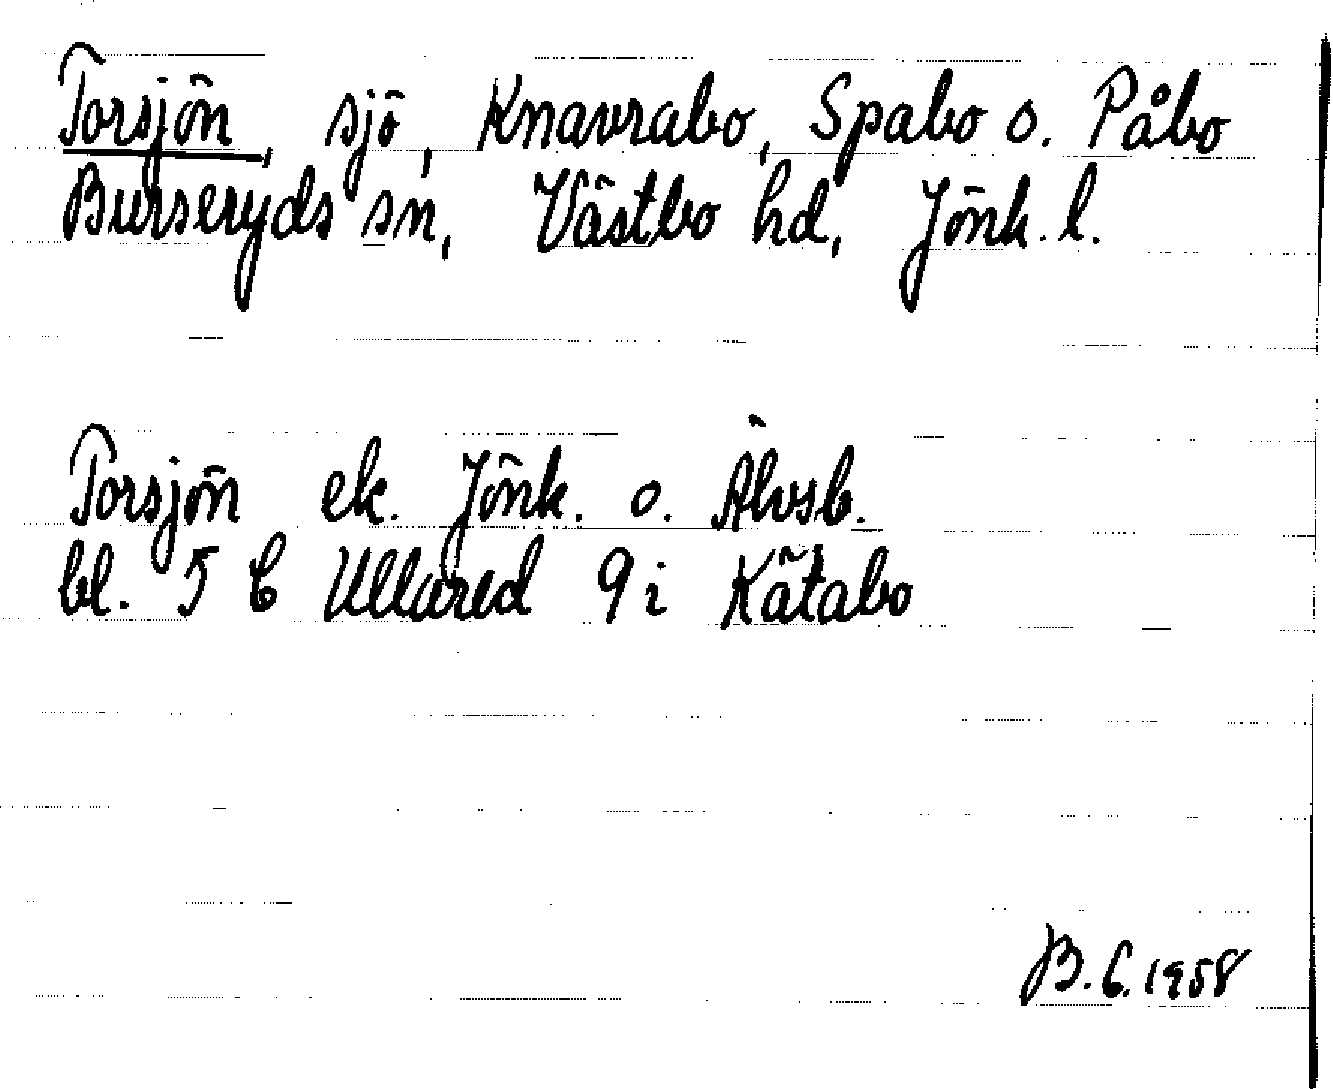 Torsjön, sjö, Knavrabo, Spabo o. Påbo
Burseryds sn, Västbo hd, Jönk. l.
Torsjön ek. Jönk. o. Älvsb.
bl. 5 C Ullared 9 i Kätabo
B.G. 1958